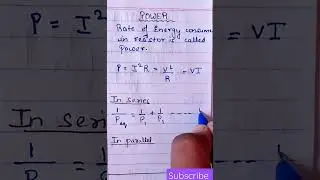 POWER
P = I²R
Rate of Energy consume
in resistor is called
power.
P = I²R = V²/R = VI
In series
1/Peq = 1/P₁ + 1/P₂ ----- 1
In parallel
Subscribe